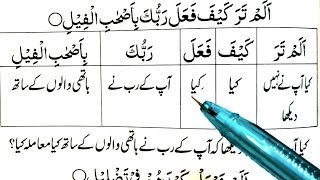 اَلَمْ تَرَ كَيْفَ فَعَلَ رَبُّكَ بِاَصْحٰبِ الْفِيْلِ○
اَلَمْ تَرَ كَيْفَ فَعَلَ رَبُّكَ بِاَصْحٰبِ الْفِيْلِ
کیا آپ نے نہیں کیا کیا آپ کے رب نے ہاتھی والوں کے ساتھ
دیکھا
کیا آپ کے رب نے ہاتھی والوں کے ساتھ کیا معاملہ کیا؟